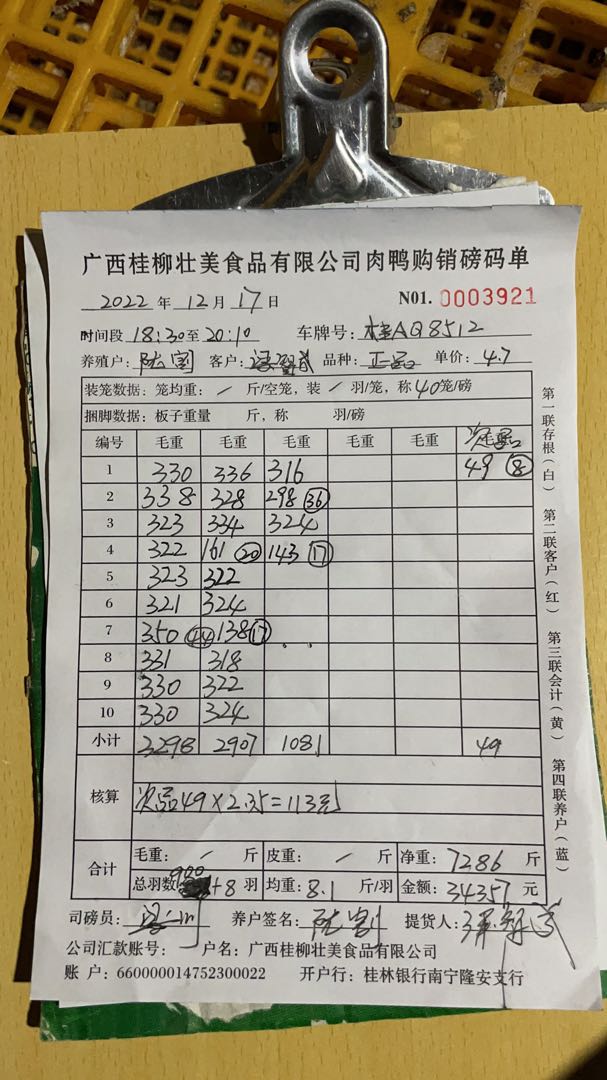 广西桂柳壮美食品有限公司肉鸭购销磅码单
2022 年 12 月 17 日 N01. 0003921
时间段 18:30 至 20:10 车牌号: 桂AQ8512
养殖户: 客户: 品种: 正品 单价: 4.7
装笼数据: 笼均重: / 斤/空笼, 装 / 羽/笼, 称 40 笼/磅
捆脚数据: 板子重量 斤, 称 羽/磅
编号 毛重 毛重 毛重 毛重 毛重 次品
1 330 336 316 49 ⑧
2 338 328 298 ㊱
3 323 334 324
4 322 161 ⑳ 143 ⑰
5 323 322
6 321 324
7 350 ㊹ 138 ⑰
8 331 318
9 330 322
10 330 324
小计 3298 2907 1081 49
核算 次品49×2.35=113元
合计 毛重: / 斤 皮重: / 斤 净重: 7286 斤
总羽数 900 +8 羽 均重: 8.1 斤/羽 金额: 34357 元
司磅员: 养户签名: 提货人:
公司汇款账号: 户名: 广西桂柳壮美食品有限公司
账 户: 660000014752300022 开户行: 桂林银行南宁隆安支行
第一联存根(白) 第二联客户(红) 第三联会计(黄) 第四联养户(蓝)